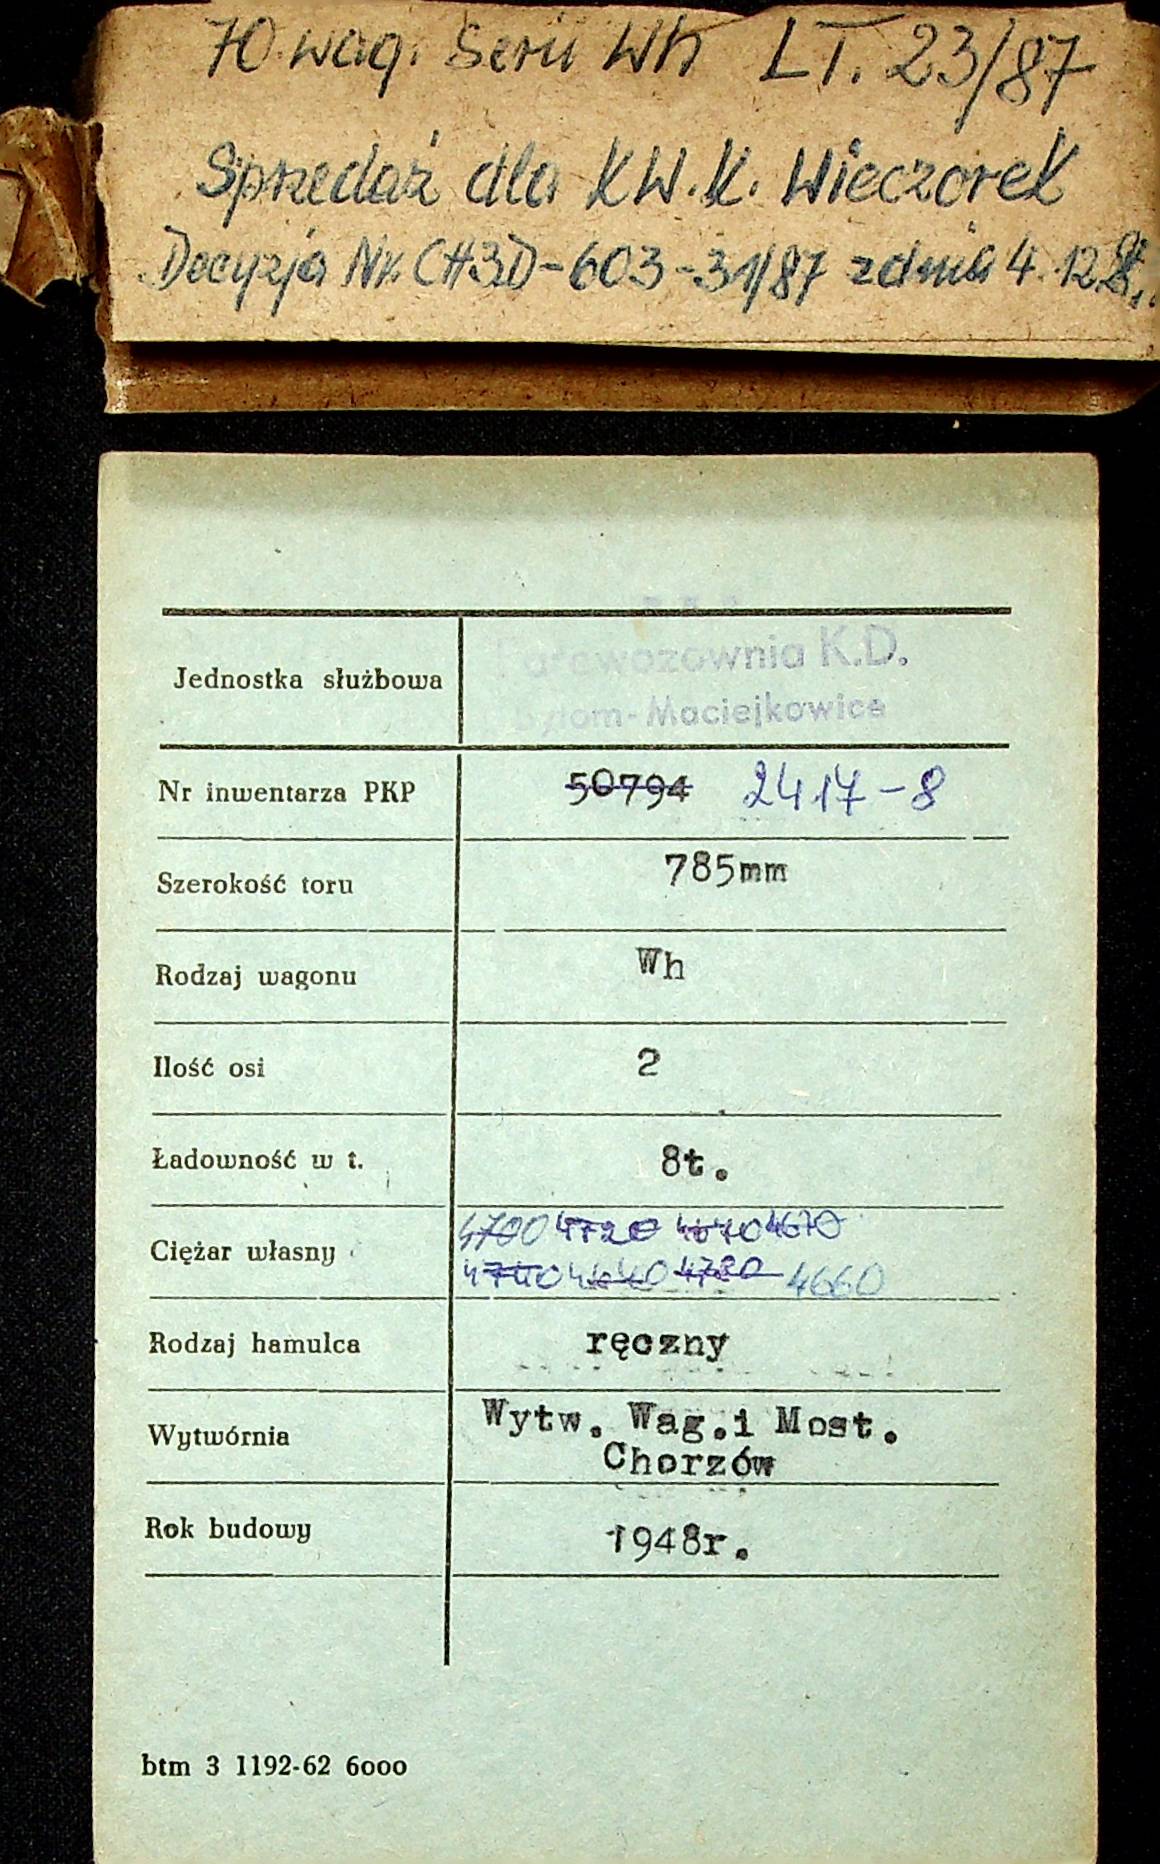 70 wag. Serii Wh LT. 23/87
Sprzedaż dla KW.K. Wieczorek
Decyzja Nr. CH3D-603-31/87 z dnia 4.12.
P K P
Parowozownia K.D.
Bytom-Maciejkowice
Jednostka służbowa
Nr inwentarza PKP 50794 2417-8
Szerokość toru 785mm
Rodzaj wagonu Wh
Ilość osi 2
Ładowność w t. 8t.
Ciężar własny 4700 4720 4670 4670
4740 4640 4780 4660
Rodzaj hamulca ręczny
Wytwórnia Wytw. Wag.i Most.
Chorzów
Rok budowy 1948r.
btm 3 1192-62 6000